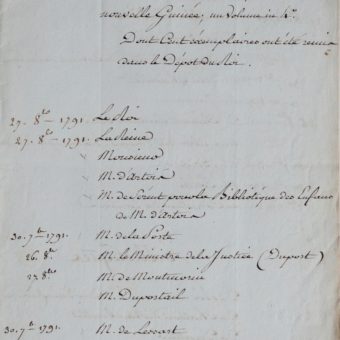 nouvelle Guinée, un Volume in 4°.
Dont Cent exemplaires ont été remis
dans le Dépot du Roi.
27. 8.bre 1791. Le Roi
27. 8.bre 1791. La Reine
Monsieur
M. d'artois
M. de Sérent pour la Bibliotéque des Enfans
de M. d'artois
30. 7.bre 1791. M. de la Porte
26. 8.bre M. le Ministre de la Justice (Duport)
27. 8.bre M. de Montmorin
M. Duportail
30. 7.bre 1791. M. de Lessart